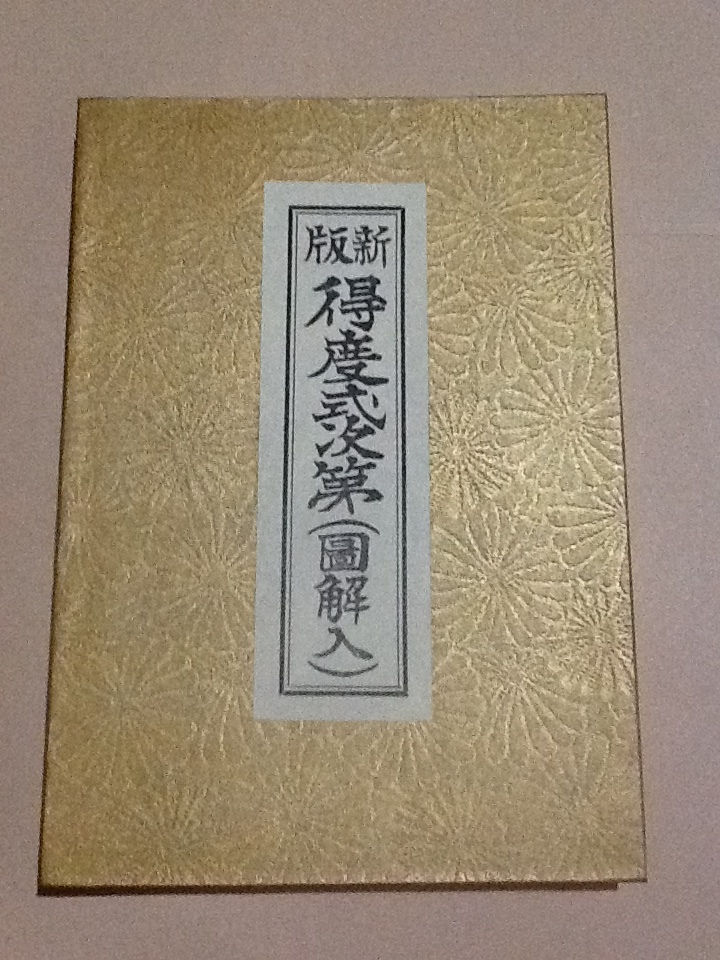 新版
得度式次第(圖解入)